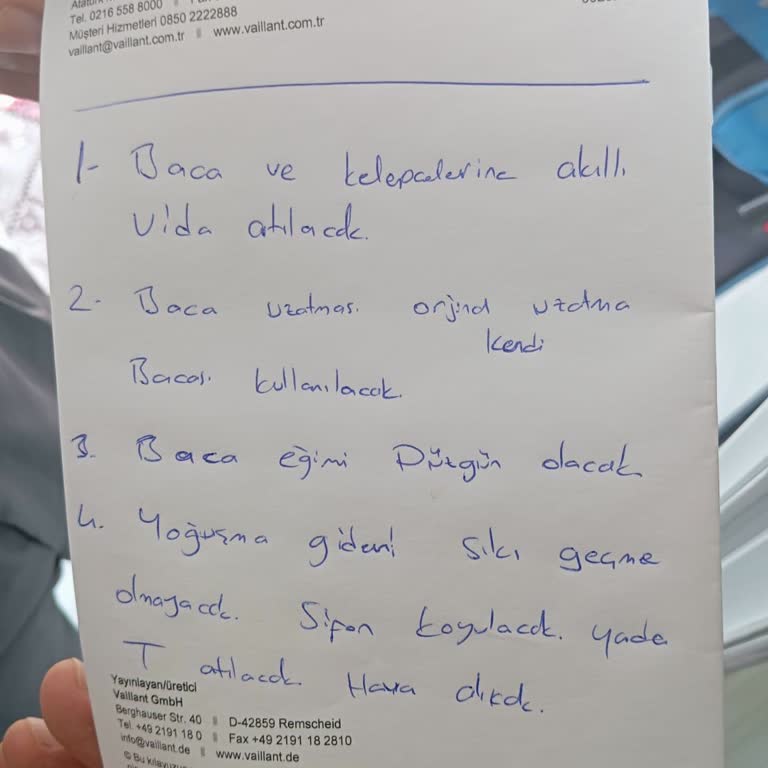 Tel. 0216 558 8000
Müşteri Hizmetleri 0850 2222888
vaillant@vaillant.com.tr || www.vaillant.com.tr
1- Baca ve kelepçelerine akıllı
vida atılacak.
2- Baca uzatması orjinal uzatma
kendi
Bacası kullanılacak.
3. Baca eğimi Düzgün olacak
4. Yoğuşma gideni sıkı geçme
olmayacak. Sifon koyulacak. yada
T atılacak. Hava alıcak.
Yayınlayan/üretici
Vaillant GmbH
Berghauser Str. 40 || D-42859 Remscheid
Tel. +49 2191 18 0 || Fax +49 2191 18 2810
info@vaillant.de || www.vaillant.de
© Bu kılavuz